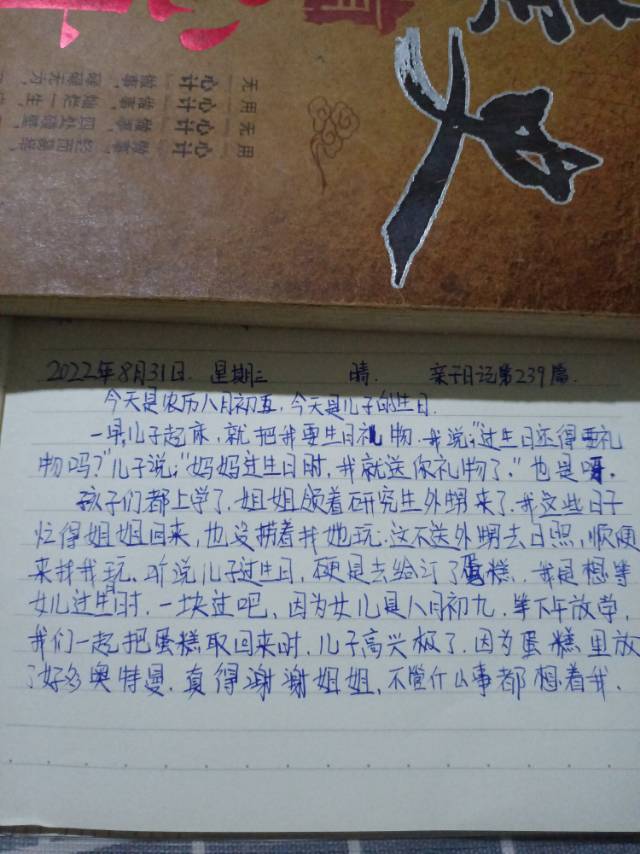 无用 心计 做事，碌碌无为
心计 做事，
无 心计 做事，四处碰壁
用 心计 做事，
2022年8月31日 星期三 晴. 亲子日记第239篇.
今天是农历八月初五，今天是儿子的生日.
一早儿子起床，就把我要生日礼物.我说:"过生日还得要礼
物吗?"儿子说:"妈妈过生日时，我就送你礼物了."也是呀.
孩子们都上学了.姐姐领着研究生外甥来了.我这些日子
忙得姐姐回来，也没捞着找她玩.这不送外甥去日照，顺便
来找我玩.听说儿子过生日，硬是去给订了蛋糕.我是想等
女儿过生日时，一块过吧，因为女儿是八月初九.等下午放学，
我们一起把蛋糕取回来时，儿子高兴极了.因为蛋糕里放
了好多奥特曼.真得谢谢姐姐，不管什么事都想着我.